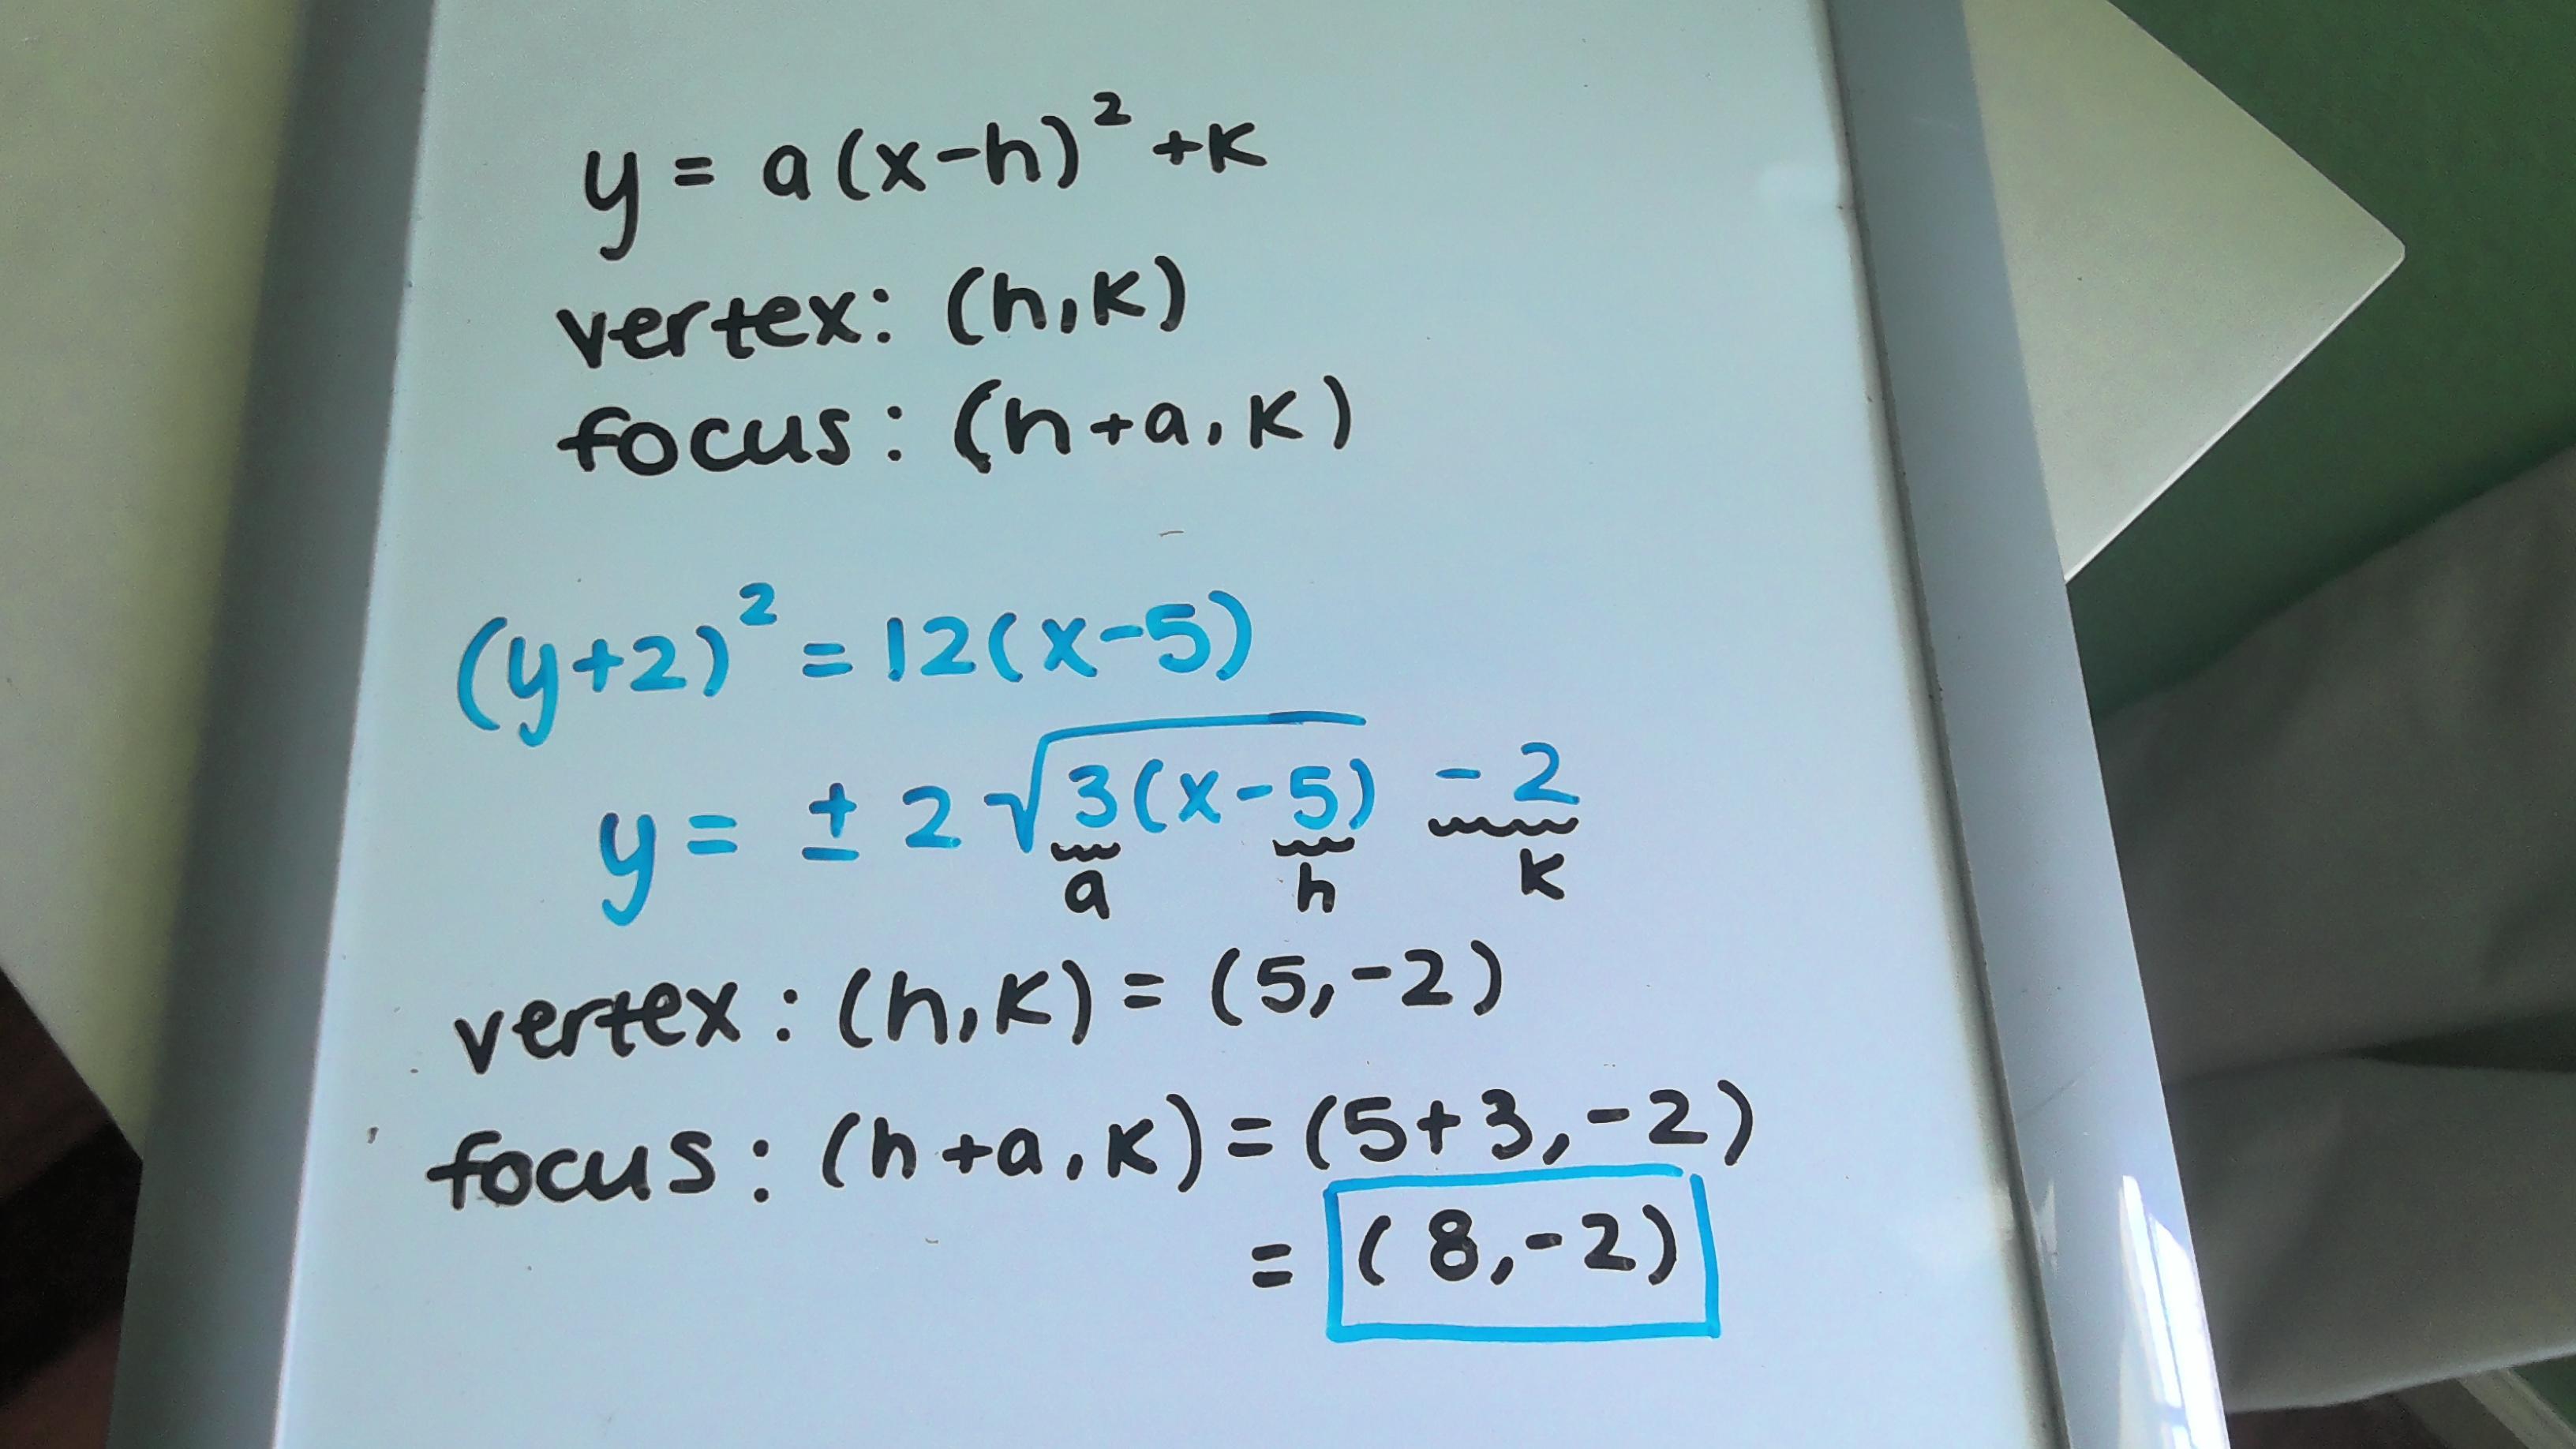 y = a(x-h)² +k
vertex: (h,k)
focus: (h+a,k)
(y+2)² = 12(x-5)
y = ± 2 √3(x-5) -2
a h k
vertex: (h,k) = (5,-2)
focus: (h+a,k) = (5+3,-2)
= (8,-2)